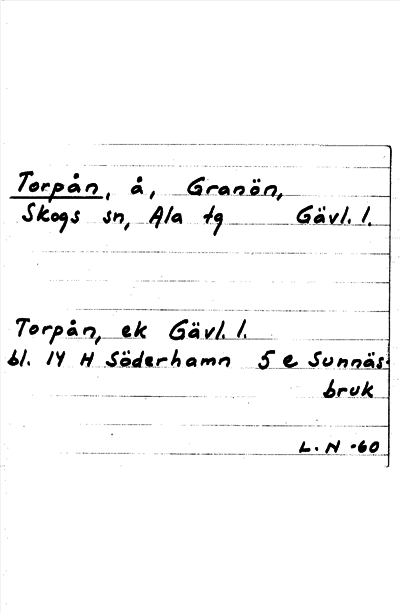 Torpån, å, Granön,
Skogs sn, Ala tg Gävl. l.
Torpån, ek Gävl. l.
bl. 14 H Söderhamn 5 e Sunnäs-
bruk
L. N -60